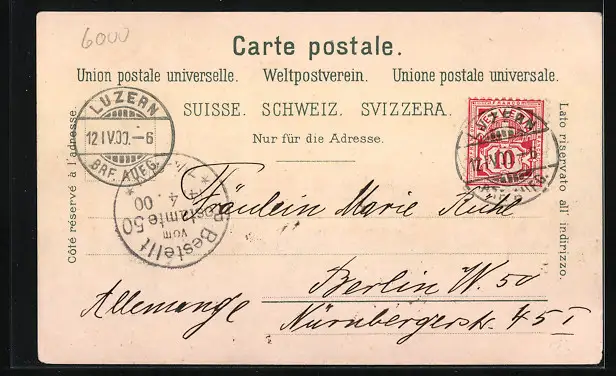 6000
Carte postale.
Union postale universelle. Weltpostverein. Unione postale universale.
SUISSE. SCHWEIZ. SVIZZERA.
Nur für die Adresse.
Côté réservé à l'adresse.
Lato riservato all' indirizzo.
LUZERN
12 IV.00.-6
BRF. AUFG.
LUZERN
12 IV.00.-6
FRANCO
HELVETIA
10
Bestellt
vom
Postamte 50
4. 00
Fräulein Marie Kühl
Berlin W. 50
Allemange Nürnbergerstr. 45 I